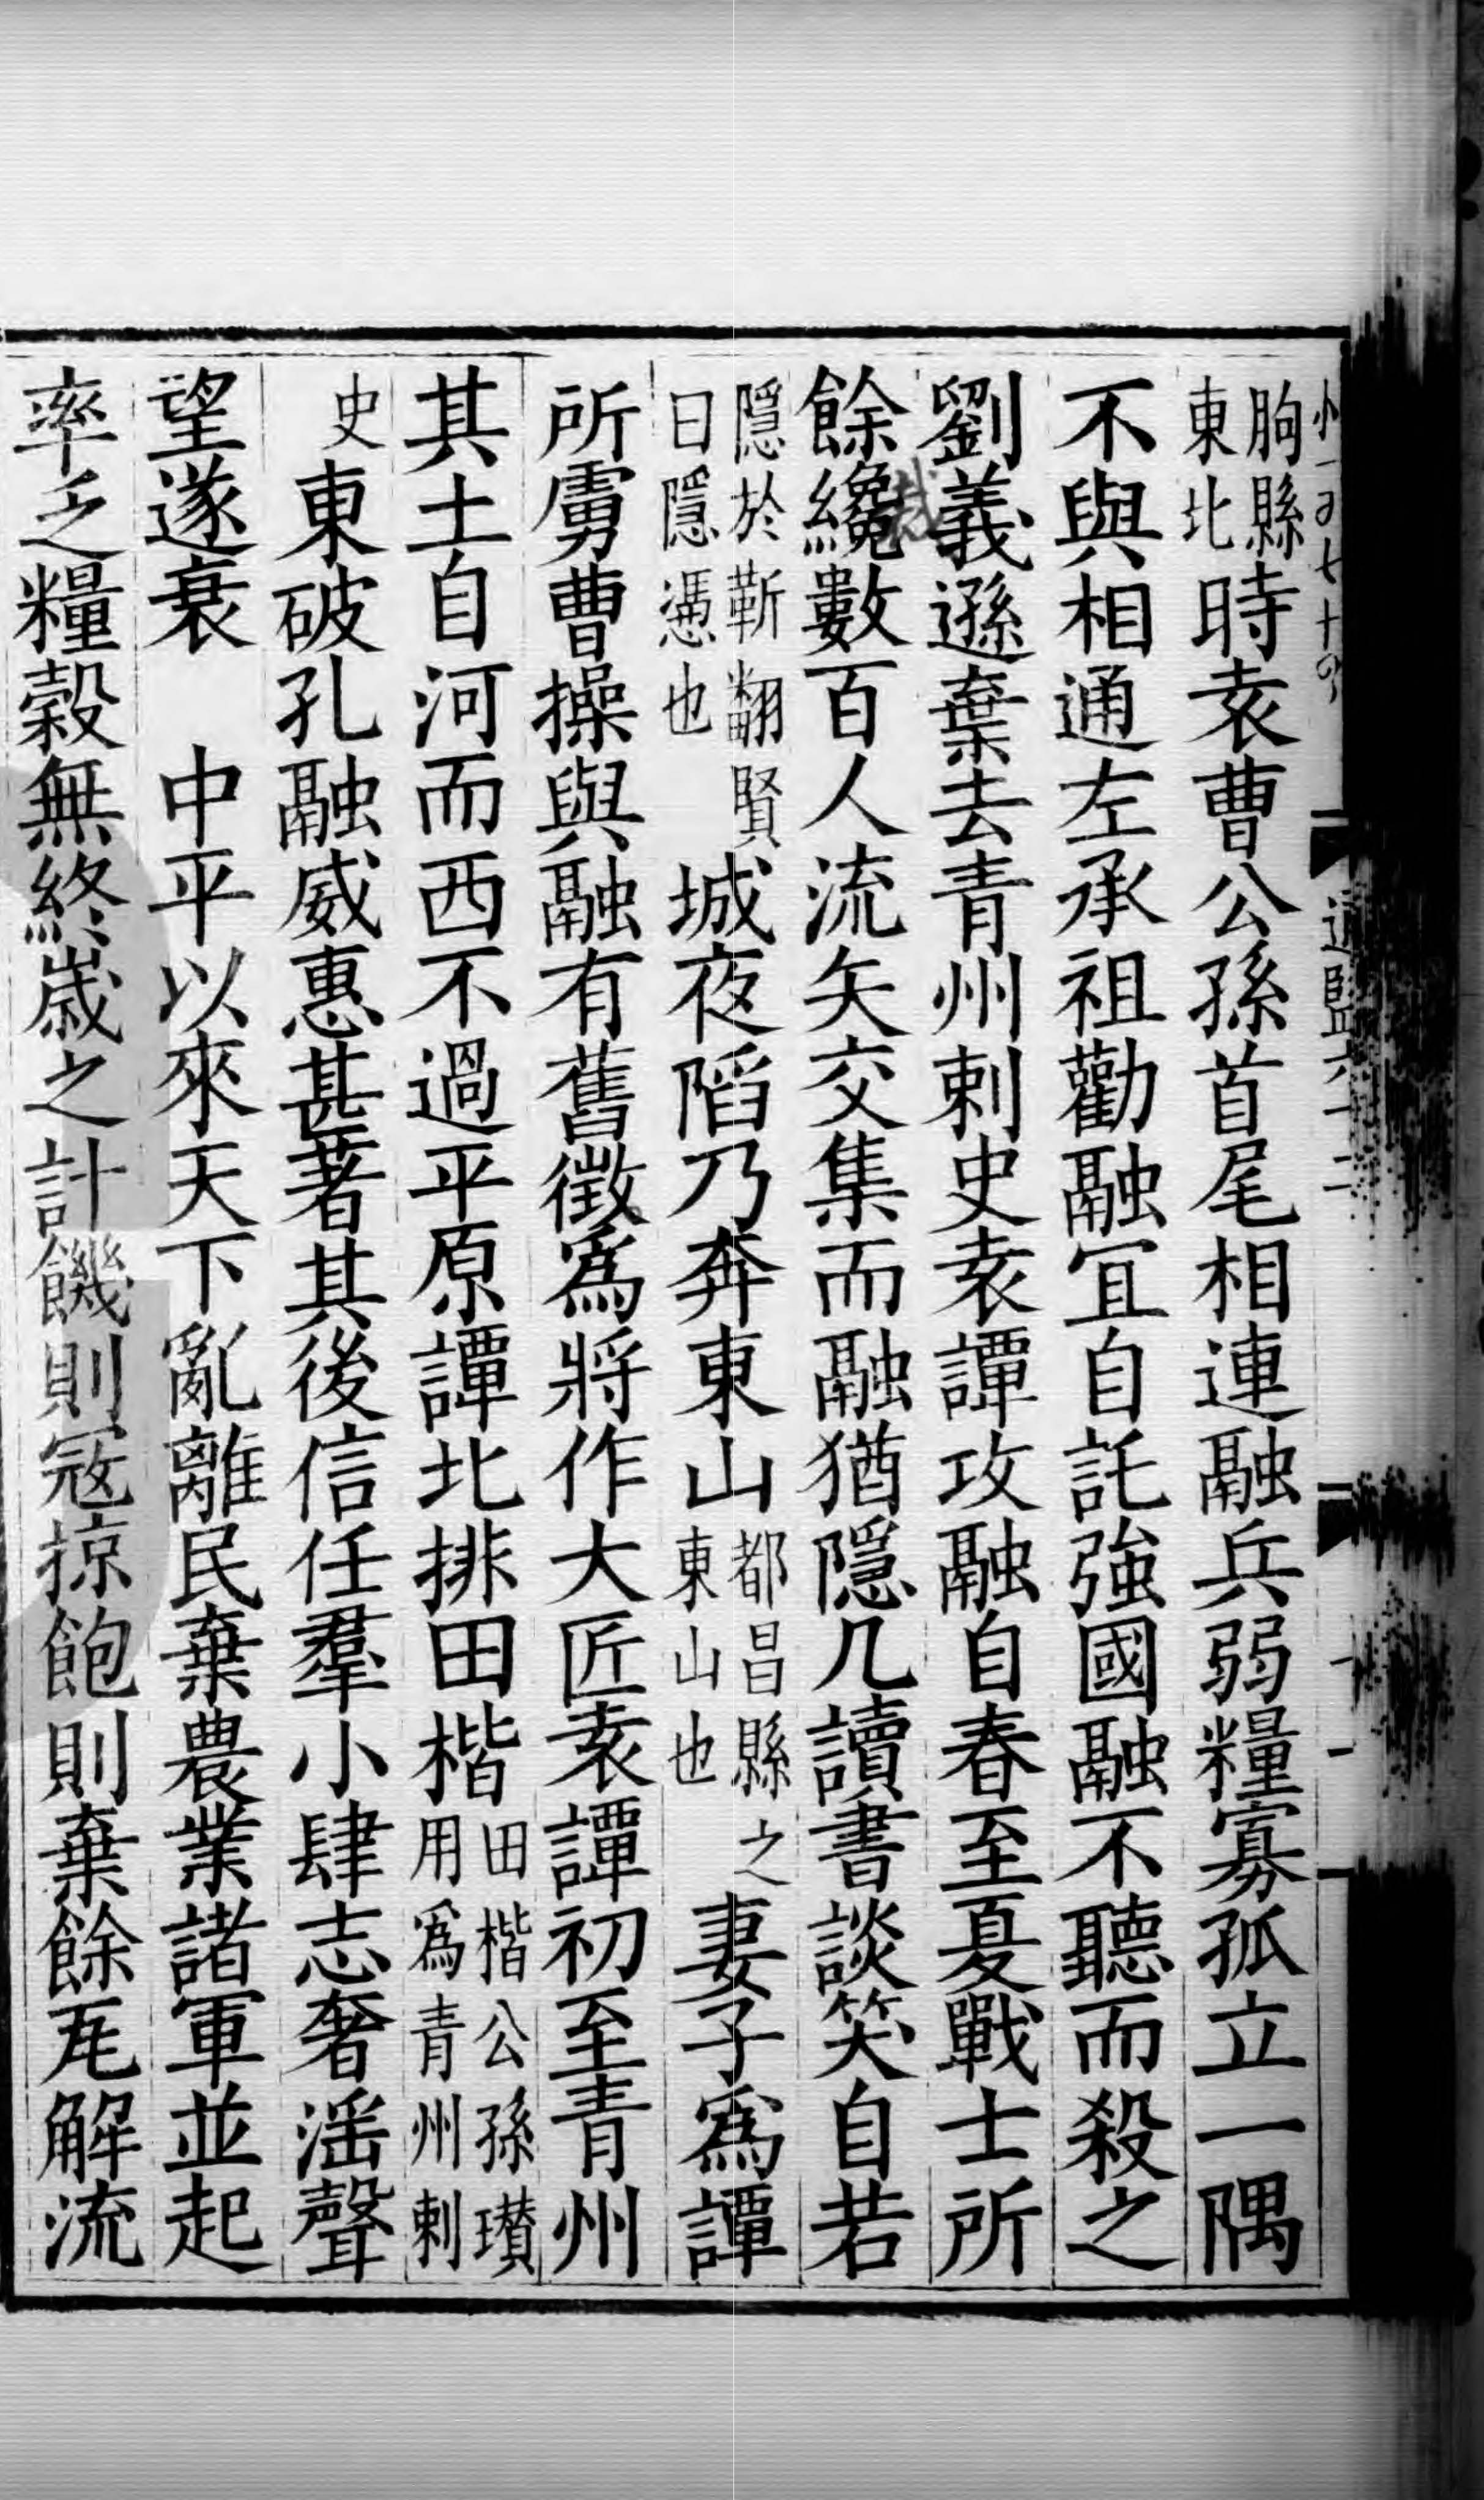 朐縣東北時袁曹公孫首尾相連融兵弱糧寡孤立一隅
不與相通左承祖勸融宜自託強國融不聽而殺之
劉義遜棄去青州刺史袁譚攻融自春至夏戰士所
餘纔數百人流矢交集而融猶隱几讀書談笑自若
隱於靳翻賢曰隱憑也城夜陷乃奔東山都昌縣之東山也妻子爲譚
所虜曹操與融有舊徵爲將作大匠袁譚初至青州
其土自河而西不過平原譚北排田楷田楷公孫瓚用爲青州刺
史東破孔融威惠甚著其後信任羣小肆志奢淫聲
望遂衰　中平以來天下亂離民棄農業諸軍並起
率乏糧穀無終歲之計饑則寇掠飽則棄餘瓦解流